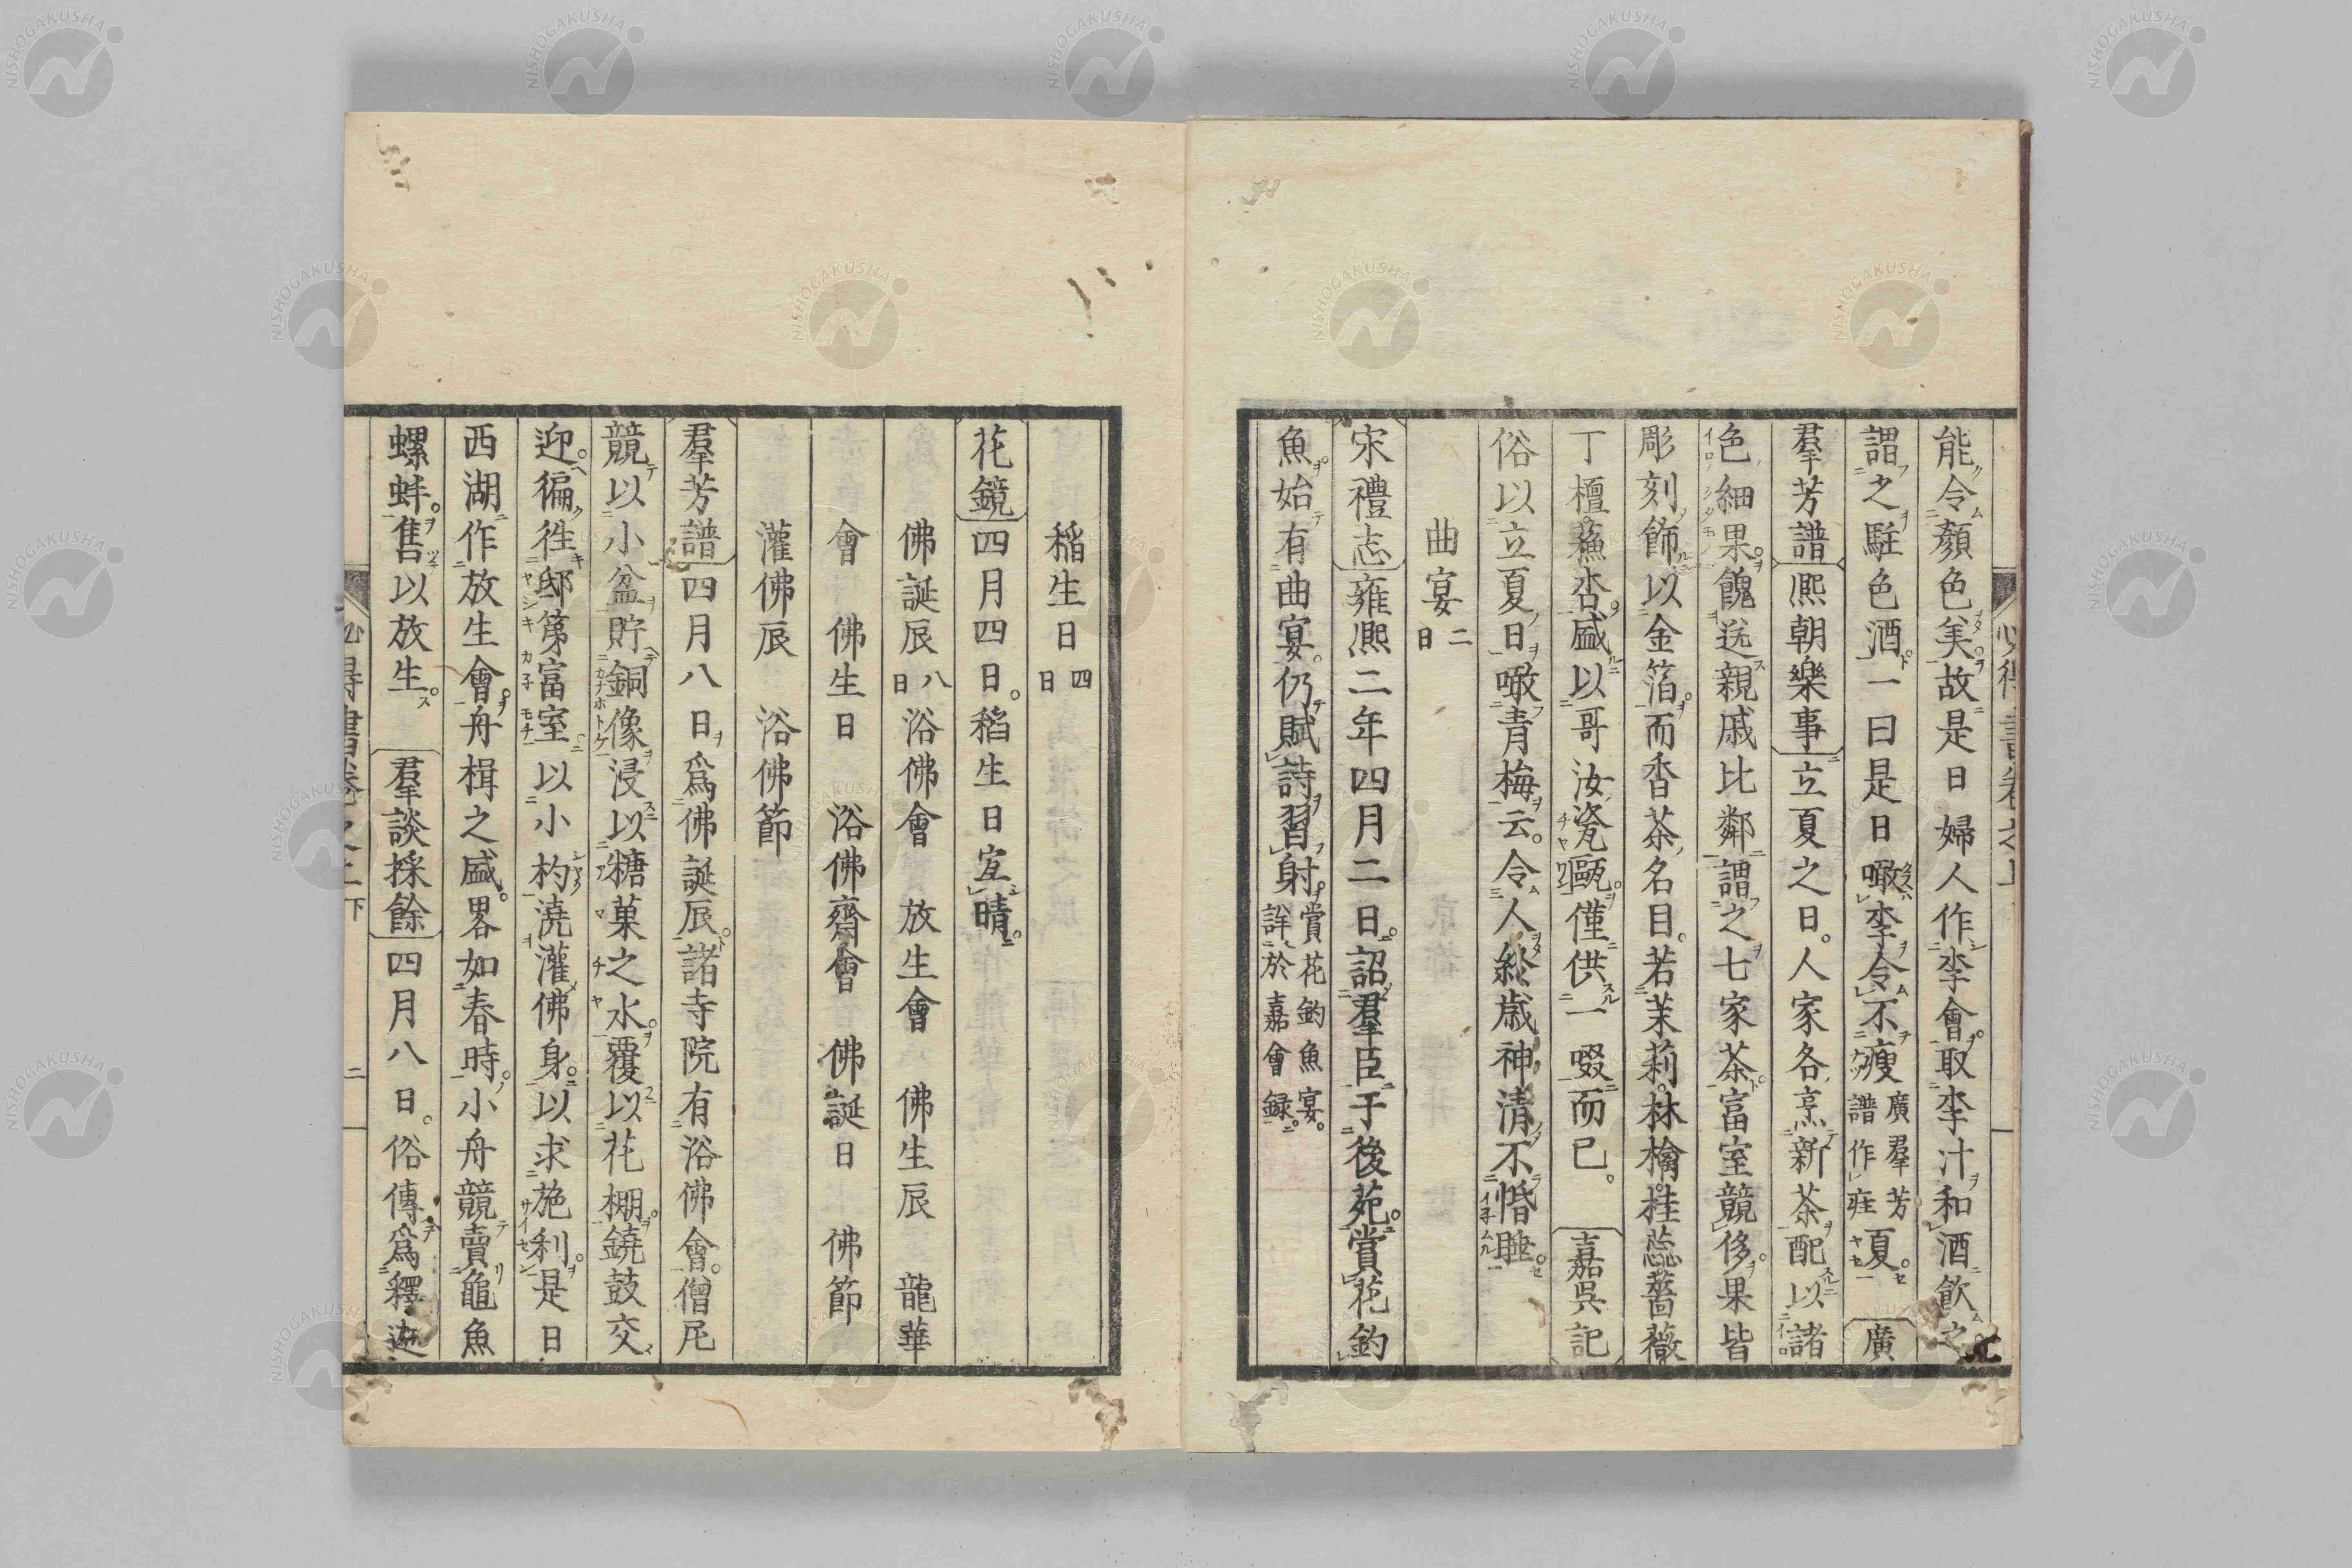 能令顏色美故是日婦人作李會取李汁和酒飲之
謂之駐色酒一曰是日噉李令不瘦廣羣芳譜作疰夏廣
羣芳譜熈朝樂事立夏之日人家各烹新茶配以諸
色細果餽送親戚比鄰謂之七家茶富室競侈果皆
彫刻飾以金箔而香茶名目若茉莉林檎桂蕊薔薇
丁檀蘓杏盛以哥汝瓷甌僅供一啜而已嘉吳記
俗以立夏日噉青梅云令人終歲神清不惛睡
曲宴二日
宋禮志雍熈二年四月二日詔羣臣于後苑賞花釣
魚始有曲宴仍賦詩習射賞花釣魚宴詳於嘉會録
稲生日四日
花鏡四月四日稻生日宐晴
佛誕辰八日浴佛會放生會佛生辰龍華
會佛生日浴佛齊會佛誕日佛節
灌佛辰浴佛節
羣芳譜四月八日爲佛誕辰諸寺院有浴佛會僧尼
競以小盆貯銅像浸以糖菓之水覆以花棚鐃鼓交
迎徧徃邸第富室以小杓澆灌佛身以求施利是日
西湖作放生會舟楫之盛畧如春時小舟競賣龜魚
螺蚌售以放生羣談採餘四月八日俗傳爲釋迦